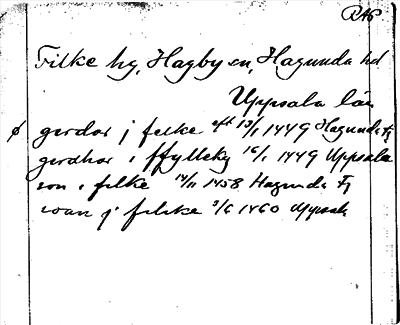 RAp
Filke by, Hagby sn, Hagunda hd
Uppsala län
ø gerdor j felke eft 13/1 1449 Hagunda Fj
gerdhar i ffylleky 16/1 1449 Uppsala
son i felke 14/11 1458 Hagunda Fj
j felske 3/6 1460 Uppsala